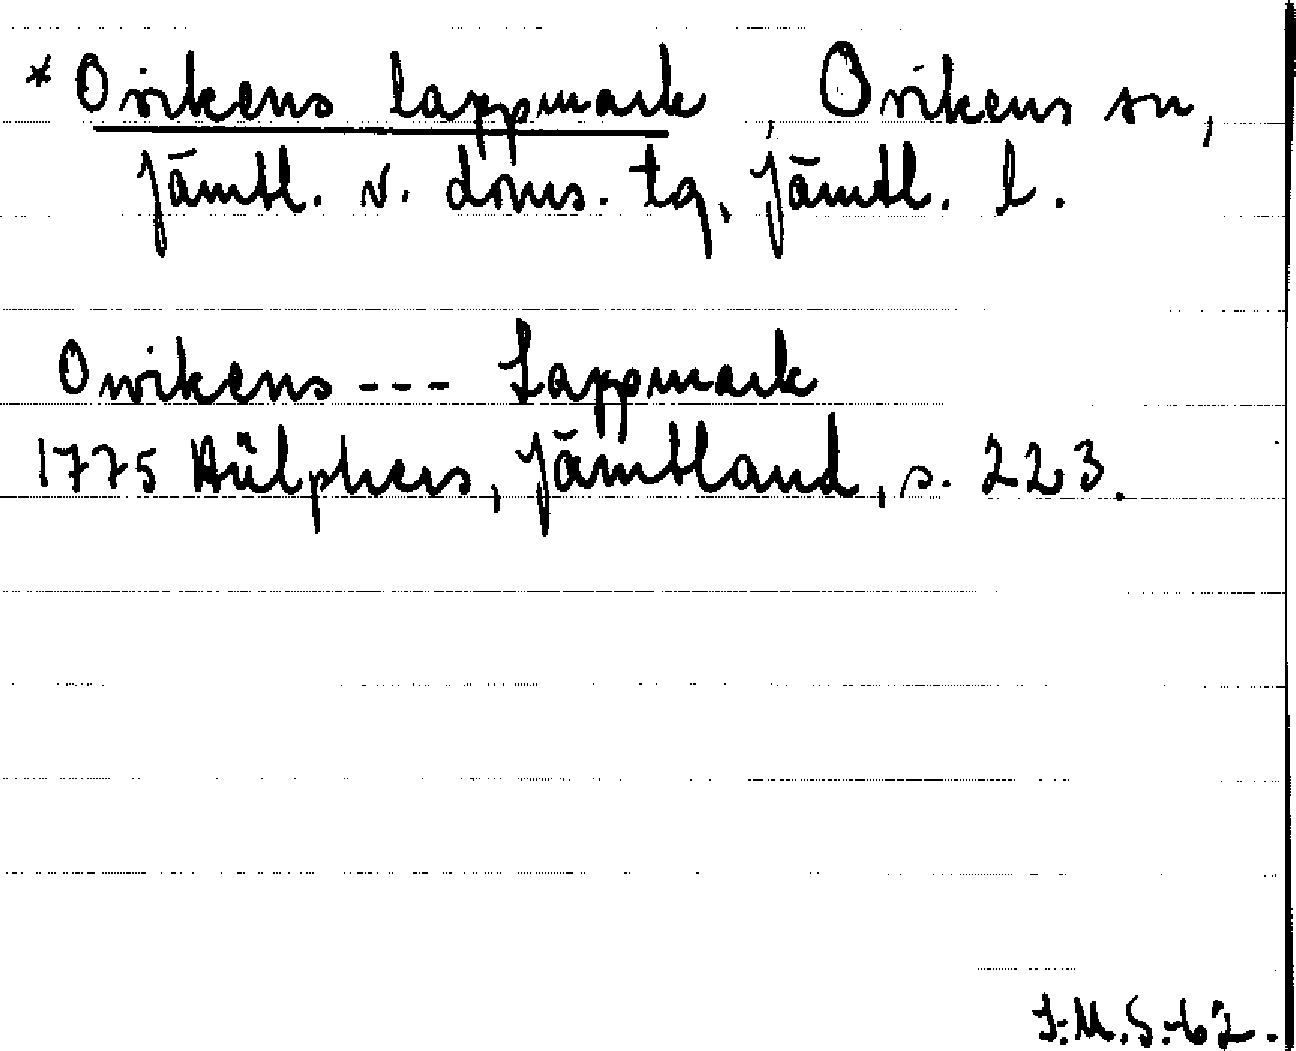 * Ovikens lappmark, Ovikens sn,
Jämtl. v. doms. tg, Jämtl. l.
Owikens --- Lappmark
1775 Hülphers, Jämtland, s. 223.
I.M.S.-62.